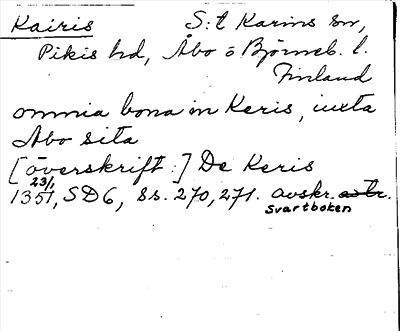 Kairis S:t Karins sn,
Pikis hd, Åbo o Björneb. l.
Finland
omnia bona in Keris, iuxta
Abo sita
[överskrift:] De Keris
23/1
1351, SD6, ss. 270, 271. avskr.
Svartboken